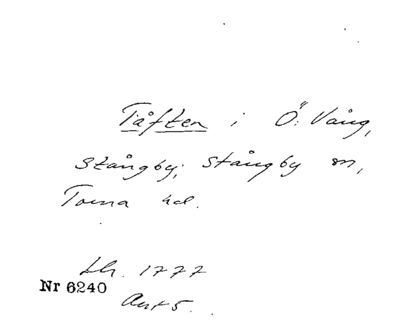 Tåften i Ö. Vång,
Stångby; Stångby sn,
Torna hd.
Lh. 1777
Nr 6240
Akt 5.